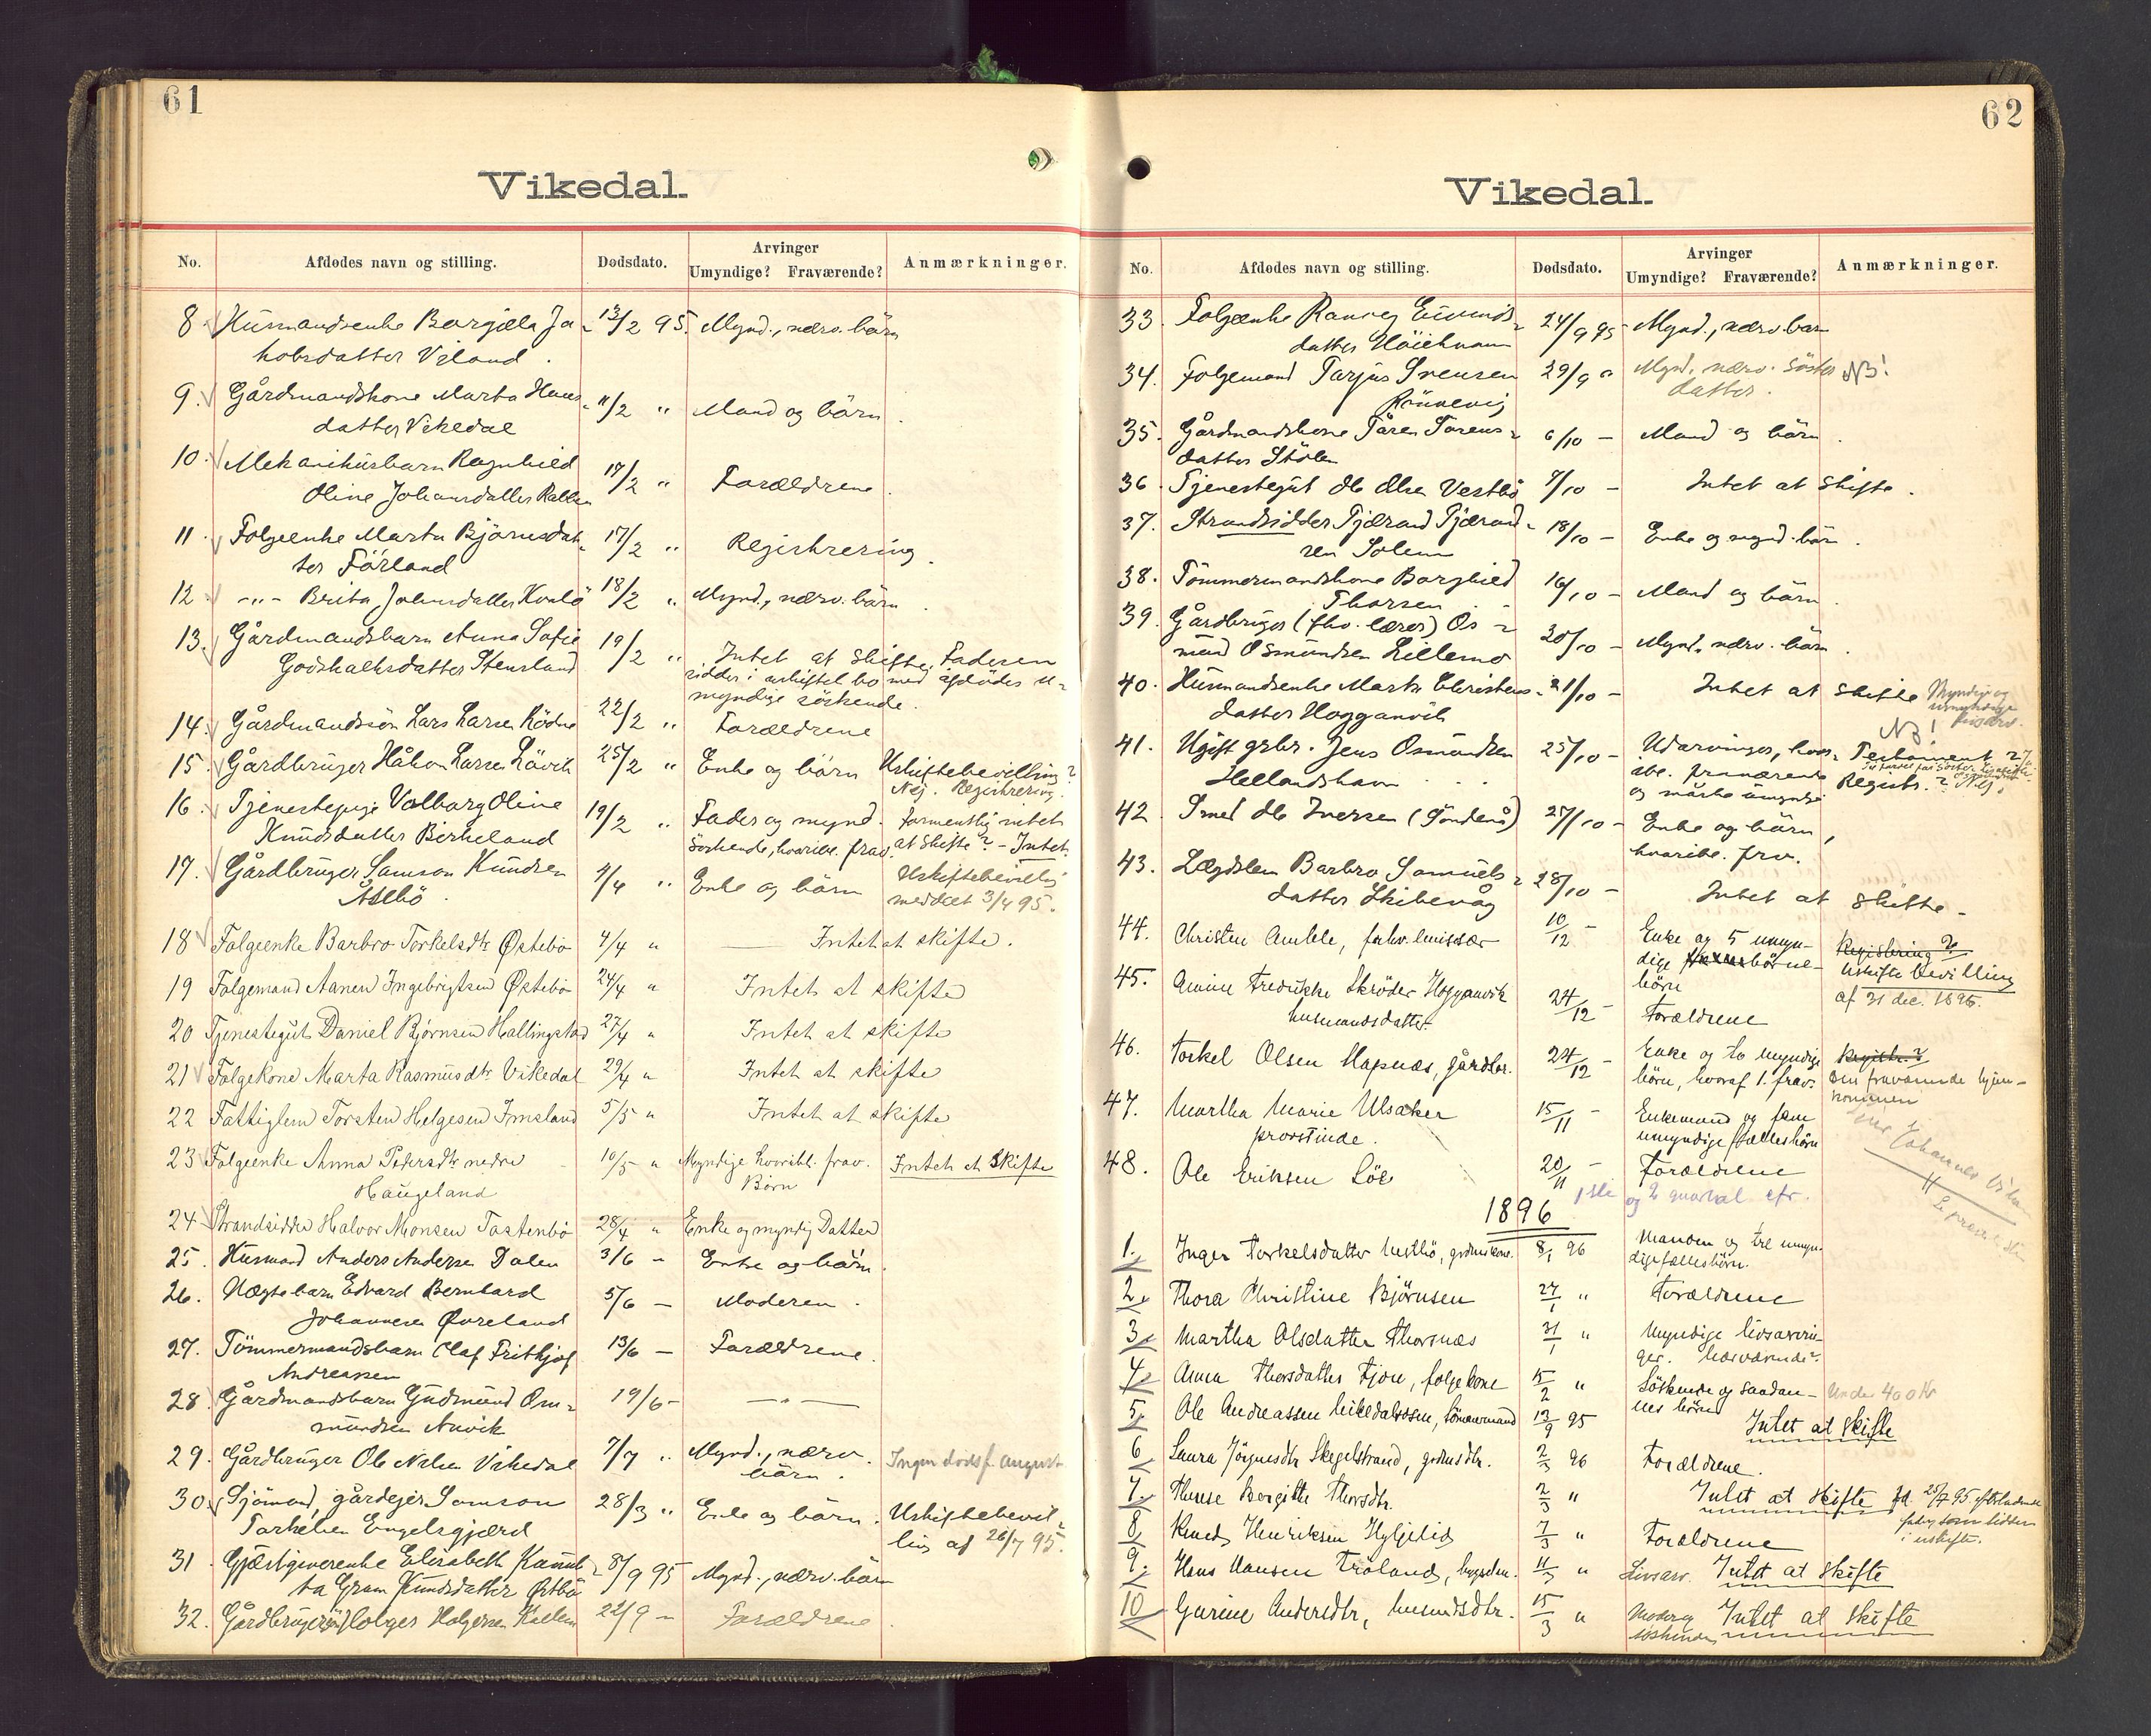 61
Vikedal.
No. Afdødes navn og stilling. Dødsdato. Arvinger Umyndige? Fraværende? Anmærkninger.
8. Husmandsenke Borgæla Ja- 13/2 95. Mynd., nærv. børn
kobsdatter Viland.
9. Gårdmandskone Marta Hans- 11/2 " Mand og børn.
datter Vikedal
10. Mekanikusbarn Ragnhild 17/2 " Forældrene.
Oline Johansdatter
11. Folgeenke Marta Bjørnsdat- 17/2 " Registrering.
ter Førland
12. -"- Brita Johnsdatter Kvalø 18/2 " Mynd., nærv. børn.
13. Gårdmandsbarn Anna Sofie 19/2 " Intet at skifte. Faderen
Godskalksdatter Stensland sidder i uskiftet bo med afdødes u-
myndige søskende.
14. Gårdmandssøn Lars Larsen Rødne 22/2 " Forældrene
15. Gårdbruger Håkon Larsen Løvik 25/2 " Enke og børn Uskiftebevilling?
Nej. Registrering.
16. Tjenestepige Valborg Oline 19/2 " Fader og mynd. formentlig intet
Knudsdatter Birkeland Søskende, hvoribl. frav. at skifte? - Intet.
17. Gårdbruger Samson Knudsen 4/4 " Enke og børn Uskiftebevillig
Åsebø. meddelt 3/4 95.
18 Folgeenke Barbro Torkelsdtr Østebø 4/4 " Intet at skifte.
19 Folgemand Aanen Ingebrigtsen Østebø 24/4 " Intet at skifte
20 Tjenestegut Daniel Bjørnsen Hallingstad 27/4 " Intet at skifte
21 Folgekone Marta Rasmusdtr Vikedal 29/4 " Intet at skifte
22 Fattiglem Torsten Helgesen Imsland 5/5 " Intet at skifte
23 Folgeenke Anna Pedersdtr nedre 10/5 " Myndige hvoribl. frav. Intet at skifte
Haugeland Børn
24 Strandsidder Halvor Monsen Tostenbø 28/4 " Enke og myndig Datter
25. Husmand Anders Andersen Dalen 3/6 - Enke og børn.
26. Uægtebarn Edvard Bernhard 5/6 - Moderen.
Johannesen Øvreland
27. Tømmermandsbarn Olaf Fritjof 13/6 - Forældrene.
Andreassen
28. Gårdmandsbarn Gudmund Om- 19/6 - -"-
mundsen Anvik
29. Gårdbruger Ole Nilsen Vikedal 7/7 " Mynd., nærv. Ingen dødsf. august
børn.
30. Sjømand, gårdejer Samson 28/3 " Enke og børn. Uskiftebevil-
Torkelsen Engelsgjerd ling af 26/7 95.
31. Gjæstgiverenke Elisabeth Kamit- 8/9 95 Mynd., nærv. børn
ta Gram Knudsdatter Østbø
32. Gårdbrugersøn Holger Holgersen 22/9 - Forældrene.
62
Vikedal.
No. Afdødes navn og stilling. Dødsdato. Arvinger Umyndige? Fraværende? Anmærkninger.
33. Folgeenke Ranveg Eivinds- 24/9 95 Mynd., nærv. børn
datter
34. Folgemand Tarjus Svensen 29/9 " Mynd. nærv. søster NB!
Rønnevig datter.
35. Gårdmandskone Tåren Torens- 6/10 - Mand og børn.
datter Stølen
36. Tjenestegut Ole Olsen Vestbø 7/10 - Intet at skifte.
37. Strandsidder Tjærand Tjærand- 18/10 - Enke og mynd. børn.
sen Solem
38. Tømmermandskone Borghild 16/10 - Mand og børn.
Thorsen
39. Gårdbruger (fhv. lærer) Os- 20/10 - Mynd. nærv. børn.
mund Osmundsen Lillemo
40. Husmandsenke Marta Christens- 21/10 - Intet at skifte Myndige og
datter Hogganvik umyndige
NB!
41. Ugift gbr. Jens Osmundsen 25/10 - Udarvinger, hvor- Testament?
Hellandshavn ibl. fraværende Registr.? Nej.
og måske umyndige
42. Smed Ole Iversen (Søndenå) 27/10 - Enke og børn,
hvoribl. frv.
43. Lægdslem Barbro Samuels- 28/10 - Intet at skifte.
datter Skibevåg
44. Christen Amble, forhv. lensmann 10/12 - Enke og 5 umyn- Registrering?
dige børne- Uskifte bevilling
børn af 31 dec. 1895.
45. Amine Fredrikke Skrøder Hogganvik 24/12 - Forældrene
husmandsdatter
46. Torkel Olsen Hapnæs, gårdbr. 24/12 - Enke og to myndige Registr.?
børn, hvoraf 1. frav. Den fraværende hjem-
kommen
47. Martha Marie Ulsaker 15/11 - Enkemand og fem
provstinde. umyndige fællesbørn
48. Ole Eriksen Løe 20/11 - Forældrene
1ste og 2 quartal efr.
1896
1. Inger Torkelsdatter Vestbø, grdmskone. 8/1 96 Manden og tre umyn-
dige fællesbørn.
2. Thora Christine Bjørnsen 27/1 " Forældrene
3. Martha Olsdatter Thorsnæs 31/1 " Myndige livsarvin-
ger. Nærværende?
4. Anna Thorsdatter Fjon, folgekone 15/2 " Søskende og saadan- Under 400 Kr
nes børn
5. Ole Andreassen Vikedalsosen, tømmermand 13/9 95 Intet at skifte
6 Laura Jørgensdtr Skegelstrand, grdmsdtr. 2/3 96 Forældrene.
7. Therese Bergitte Thorsdtr. 2/3 " Intet at skifte fd. 25/7 95 efterladende
fader som sidder
i uskifte.
8. Knud Henriksen Hylgelid 7/3 " Forældrene
9. Hans Hansen Frøland, 11/3 " Livsarv. Intet at skifte
10 Gurine Andersdtr, husmdsdtr. 15/3 " Moder og Intet at skifte
søskende